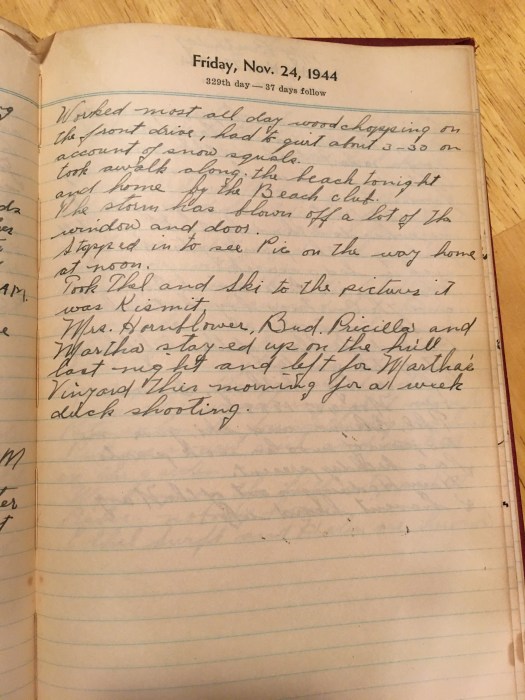 Friday, Nov. 24, 1944
329th day — 37 days follow
Worked most all day wood chopping on
the front drive, had to quit about 3-30 on
account of snow squals.
took a walk along the beach tonight
and home by the Beach club.
The storm has blown off a lot of the
window and door.
Stopped in to see Pie on the way home
at noon.
Took and Ski to the pictures it
was Kismit
Mrs. Hornblower, Bud. Pricilla and
Martha stayed up on the hill
last night and left for Martha's
Vinyard this morning for a week
duck shooting.
AM.
M